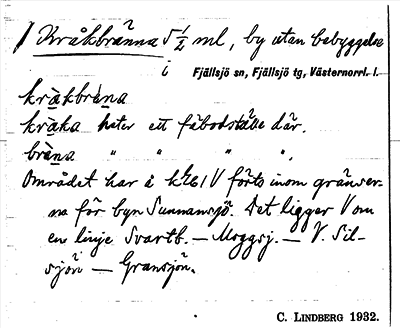 Kråkbränna 5 1/2 ml, by utan bebyggelse
i Fjällsjö sn, Fjällsjö tg, Västernorrl. l.
kràkbràna
kràka heter ett fäbodställe där.
bràna " " " "
Området har å kbl 61 V förts inom gränser-
na för byn Sunnansjö. Det ligger V om
en linje Svartb. — Moggsj. — V. Sil-
sjön — Gransjön.
C. LINDBERG 1932.